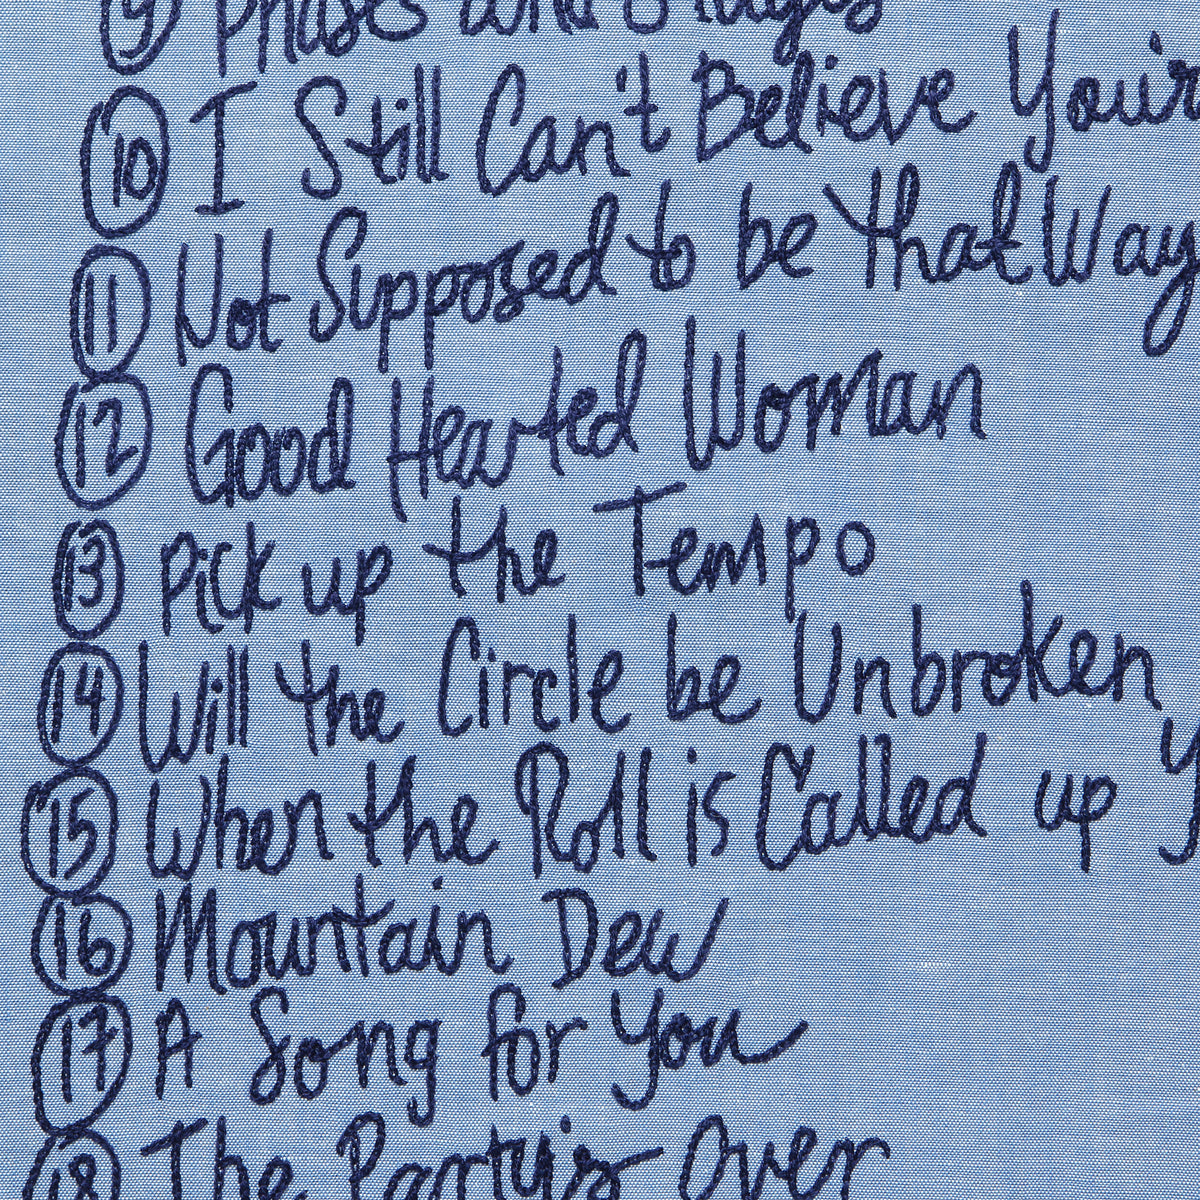 9 Phases and Stages
10 I Still Can't Believe Your
11 Not Supposed to be that Way
12 Good Hearted Woman
13 Pick up the Tempo
14 Will the Circle be Unbroken
15 When the Roll is Called up Y
16 Mountain Dew
17 A Song for You
18 The Party's Over